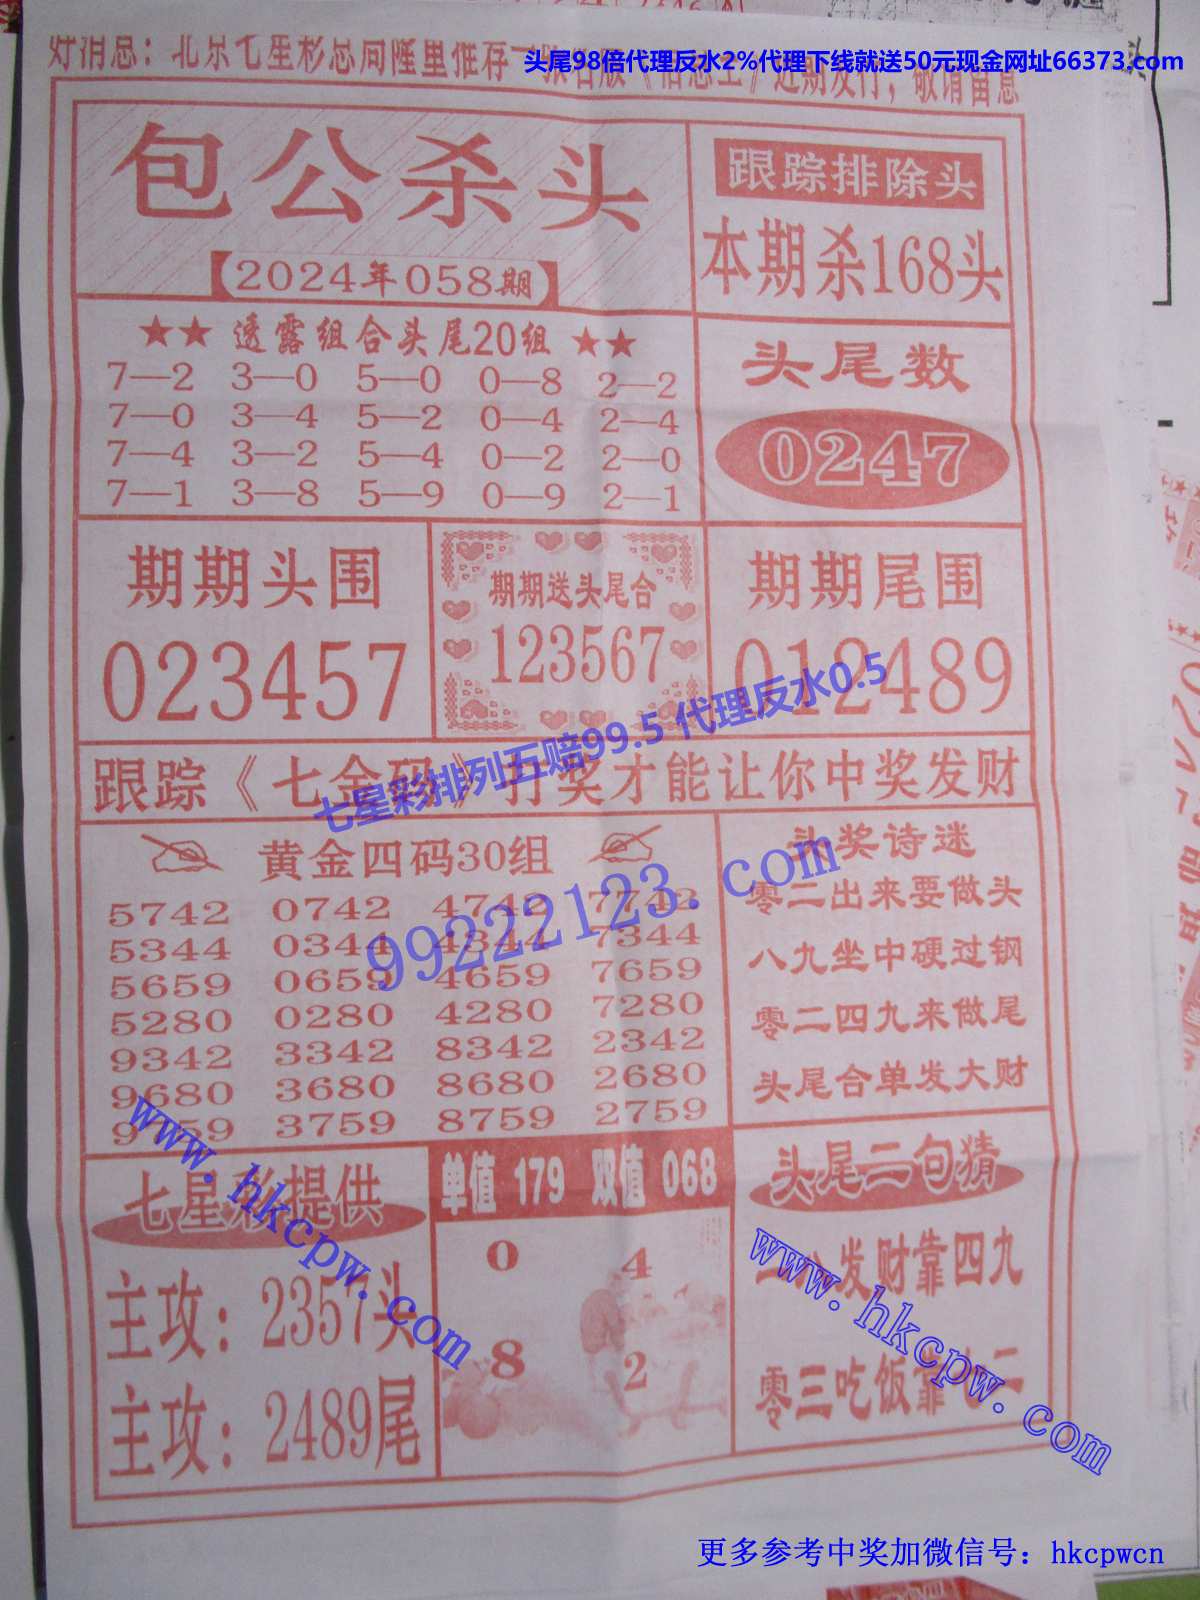 头尾98倍代理反水2%代理下线就送50元现金网址66373.com
好消息：北京七星彩总局隆重推荐
近期发行，敬请留意
包公杀头
【2024年058期】
跟踪排除头
本期杀168头
★★ 透露组合头尾20组 ★★
7—2 3—0 5—0 0—8 2—2
7—0 3—4 5—2 0—4 2—4
7—4 3—2 5—4 0—2 2—0
7—1 3—8 5—9 0—9 2—1
头尾数
0247
期期头围
023457
期期送头尾合
123567
期期尾围
012489
七星彩排列五赔99.5 代理反水0.5
跟踪《七金码》打奖才能让你中奖发财
黄金四码30组
5742 0742 4742 7742
5344 0344 4344 7344
5659 0659 4659 7659
5280 0280 4280 7280
9342 3342 8342 2342
9680 3680 8680 2680
9759 3759 8759 2759
99222123.com
头奖诗迷
零二出来要做头
八九坐中硬过钢
零二四九来做尾
头尾合单发大财
七星彩提供
主攻：2357头
主攻：2489尾
www.hkcpw.com
单值 179 双值 068
0 4
8 2
头尾二句猜
发财靠四九
零三吃饭靠
www.hkcpw.com
更多参考中奖加微信号：hkcpwcn